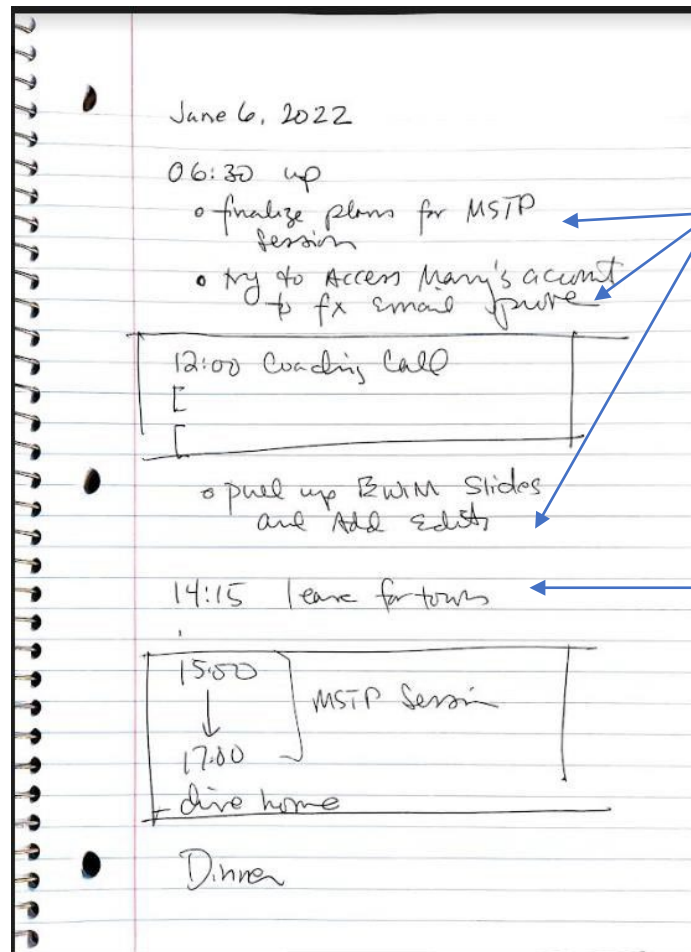 June 6, 2022
06:30 up
o finalize plans for MSTP
Session
• try to Access Mary's account
to fx email
12:00 Coaching Call
[
[
o pull up EWIM Slides
and Add Edits
14:15 leave for town
15:00
↓
17:00
MSTP Session
drive home
Dinner